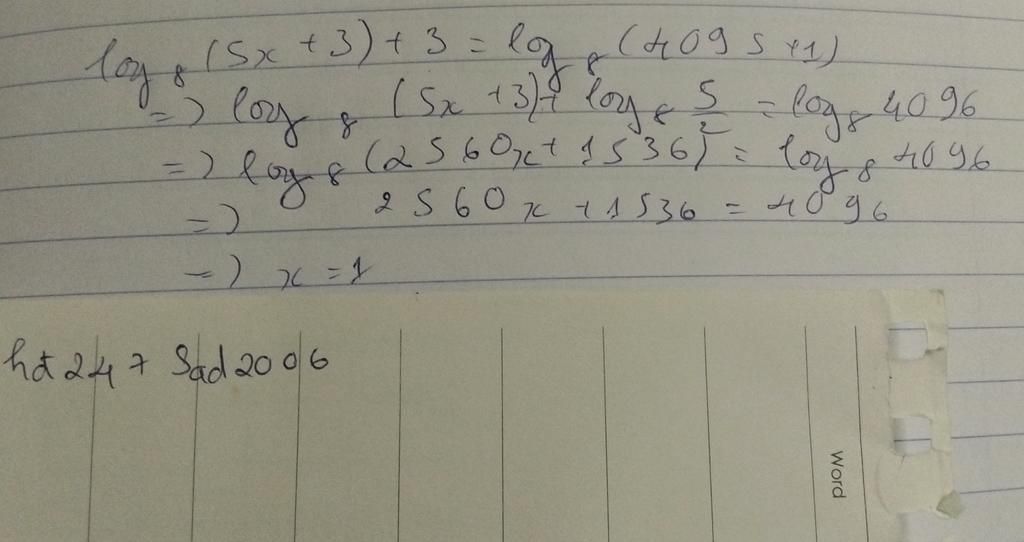 log₈ (5x + 3) + 3 = log₈ (4095 + 1)
=> log₈ (5x + 3) + log₈ 5/2 = log₈ 4096
=> log₈ (2560x + 1536) = log₈ 4096
=> 2560x + 1536 = 4096
=> x = 1
hd247 Sad2006
Word